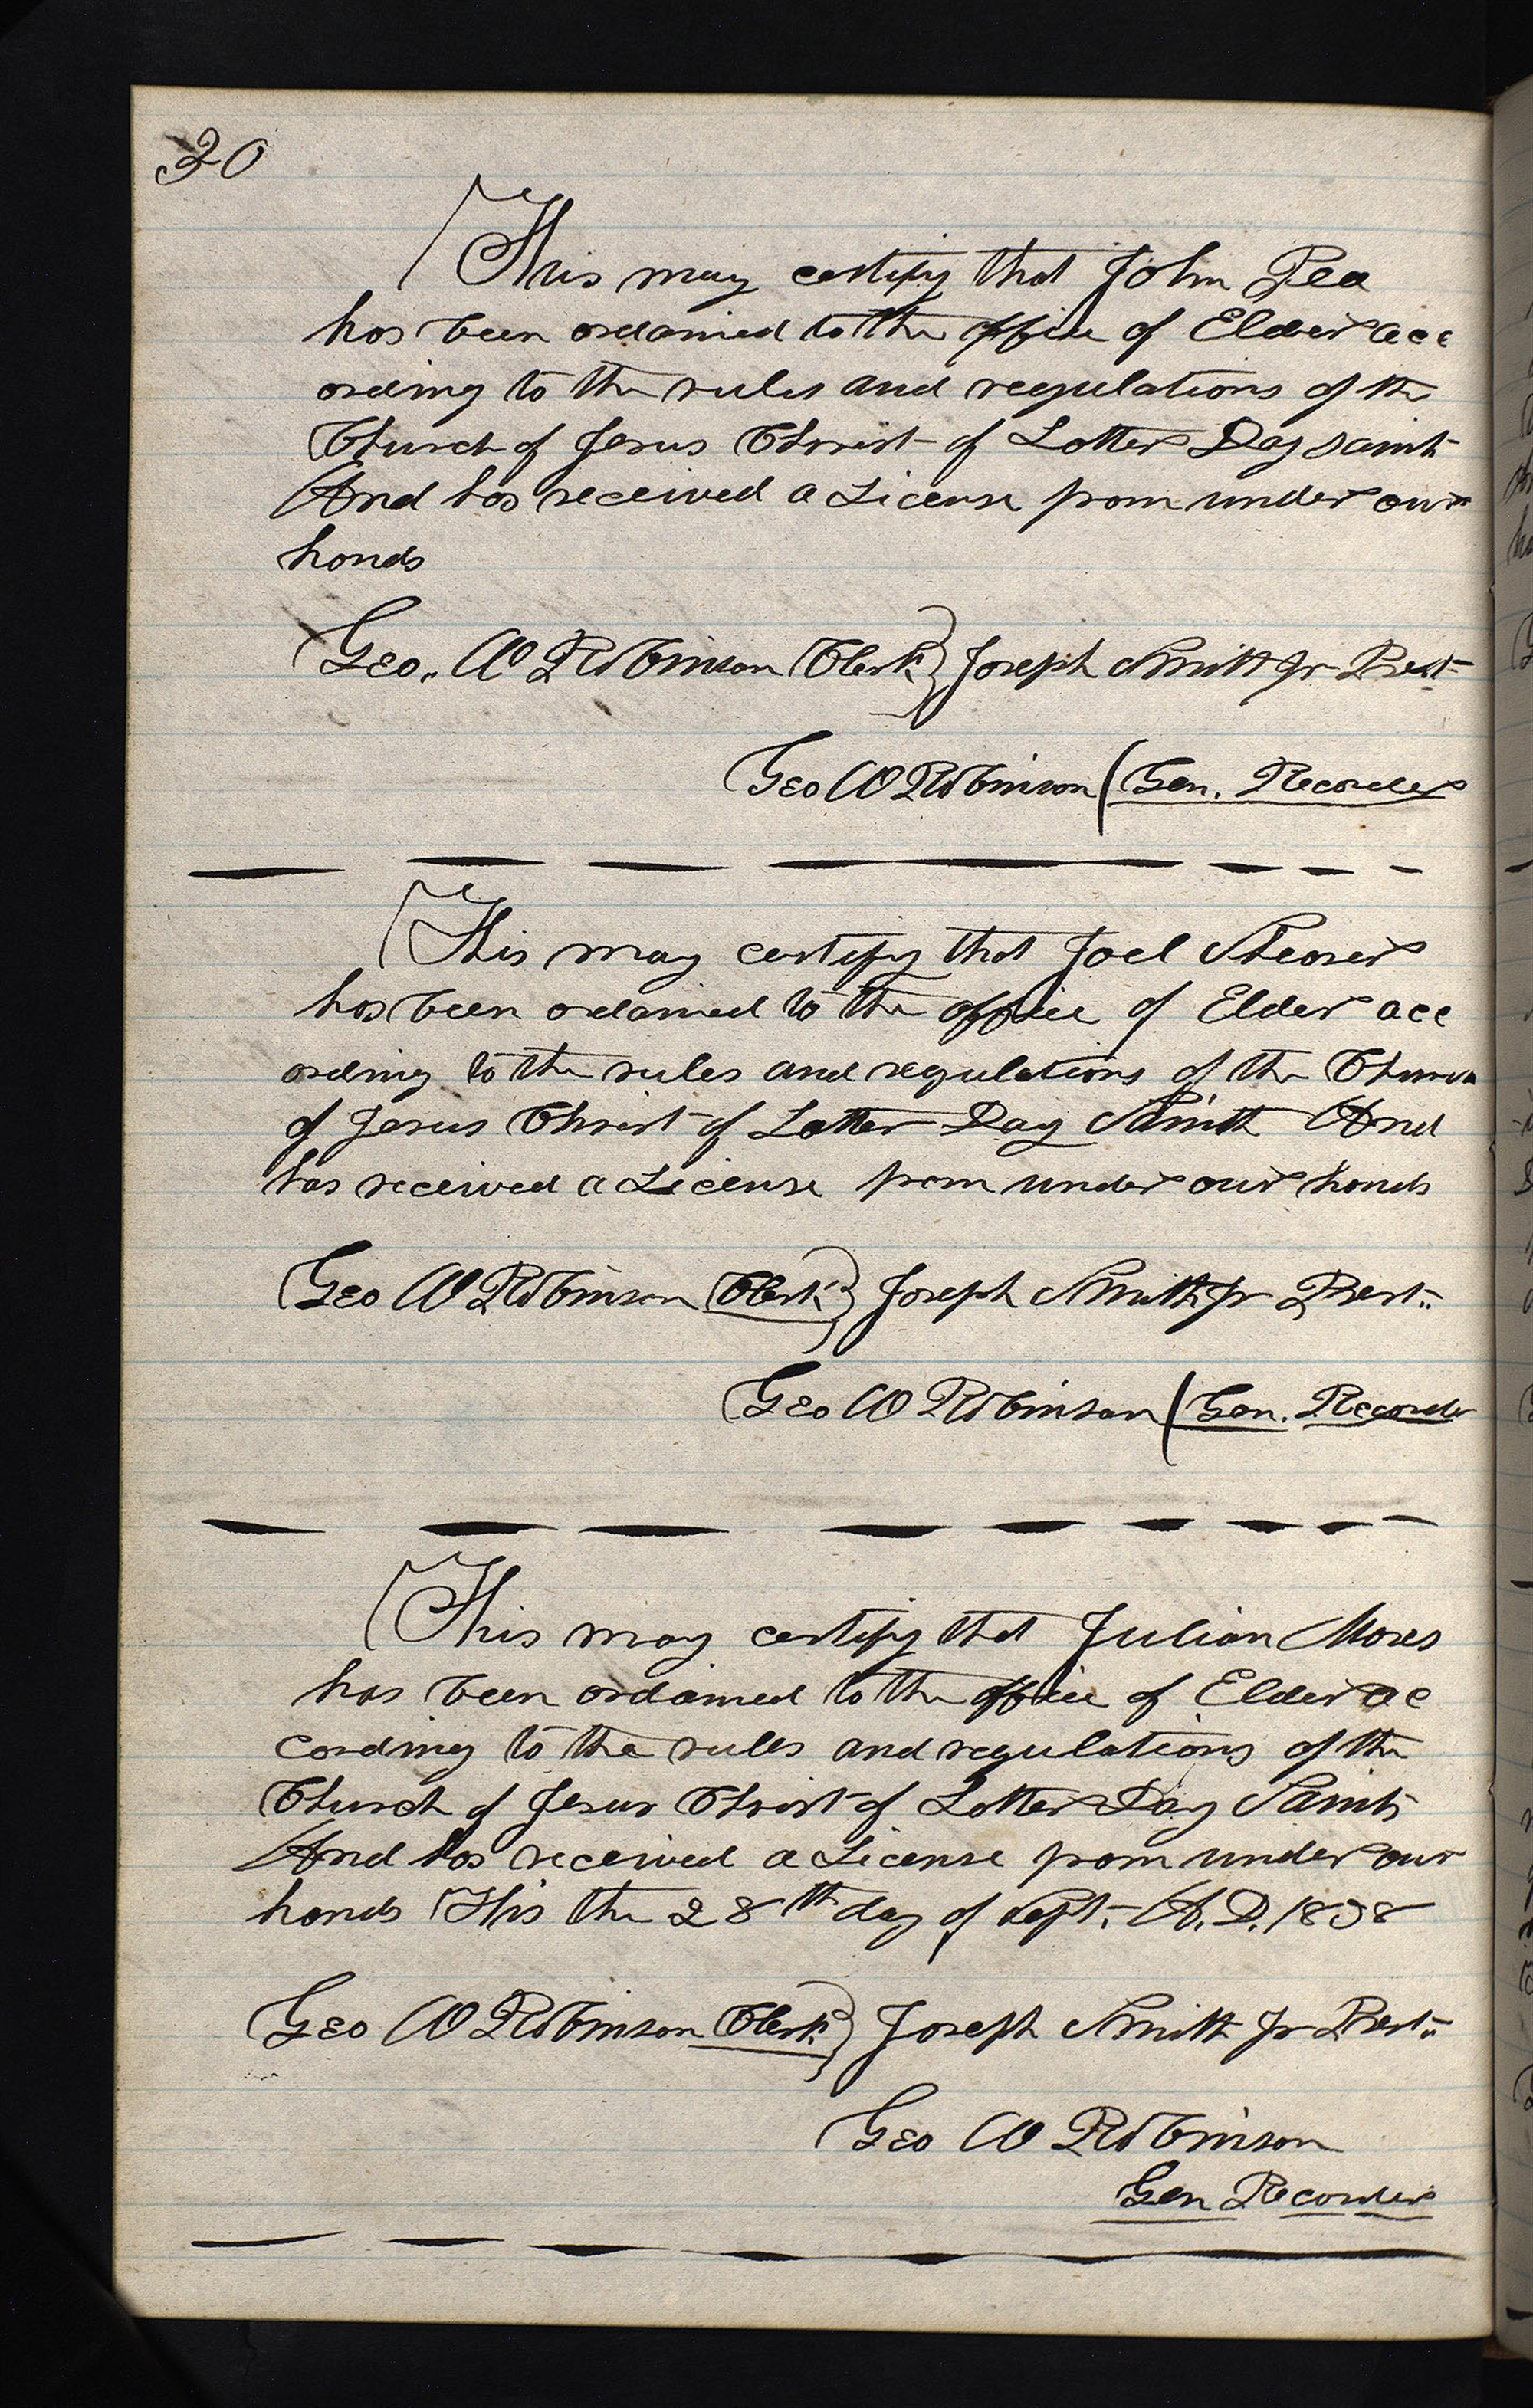 30
This may certify that John Pea
has been ordained to the office of Elder acc
ording to the rules and regulations of the
Church of Jesus Christ of Latter Day saints
And has received a License from under our
hands
Geo. W Robinson Clerk } Joseph Smith Jr Prest.
Geo W Robinson ( Gen. Recorder
This may certify that Joel Shearer
has been ordained to the office of Elder acc
ording to the rules and regulations of the Church
of Jesus Christ of Latter Day Saints And
has received a License from under our hands
Geo W Robinson Clerk } Joseph Smith Jr Prest.
Geo W Robinson ( Gen. Recorder
This may certify that Julian Moses
has been ordained to the office of Elder ac
cording to the rules and regulations of the
Church of Jesus Christ of Latter Day Saints
And has received a License from under our
hands This the 28th day of Sept. A. D. 1838
Geo W Robinson Clerk } Joseph Smith Jr Prest.
Geo W Robinson
Gen Recorder